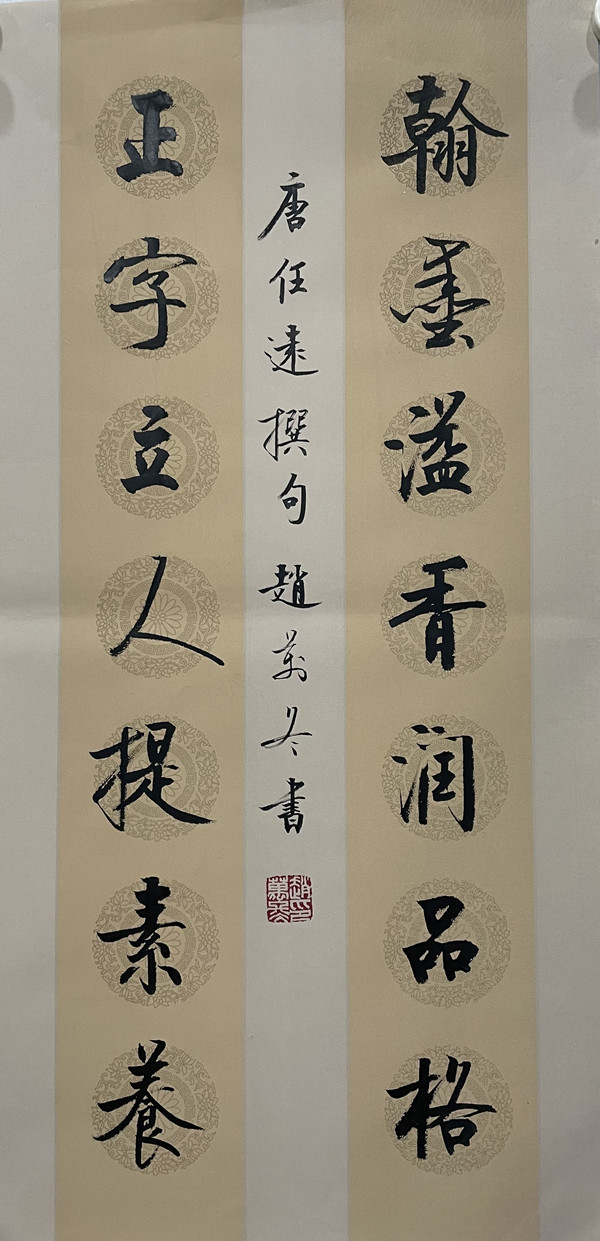 翰墨溢香润品格
唐任遠撰句 趙萬冬書
正字立人提素養